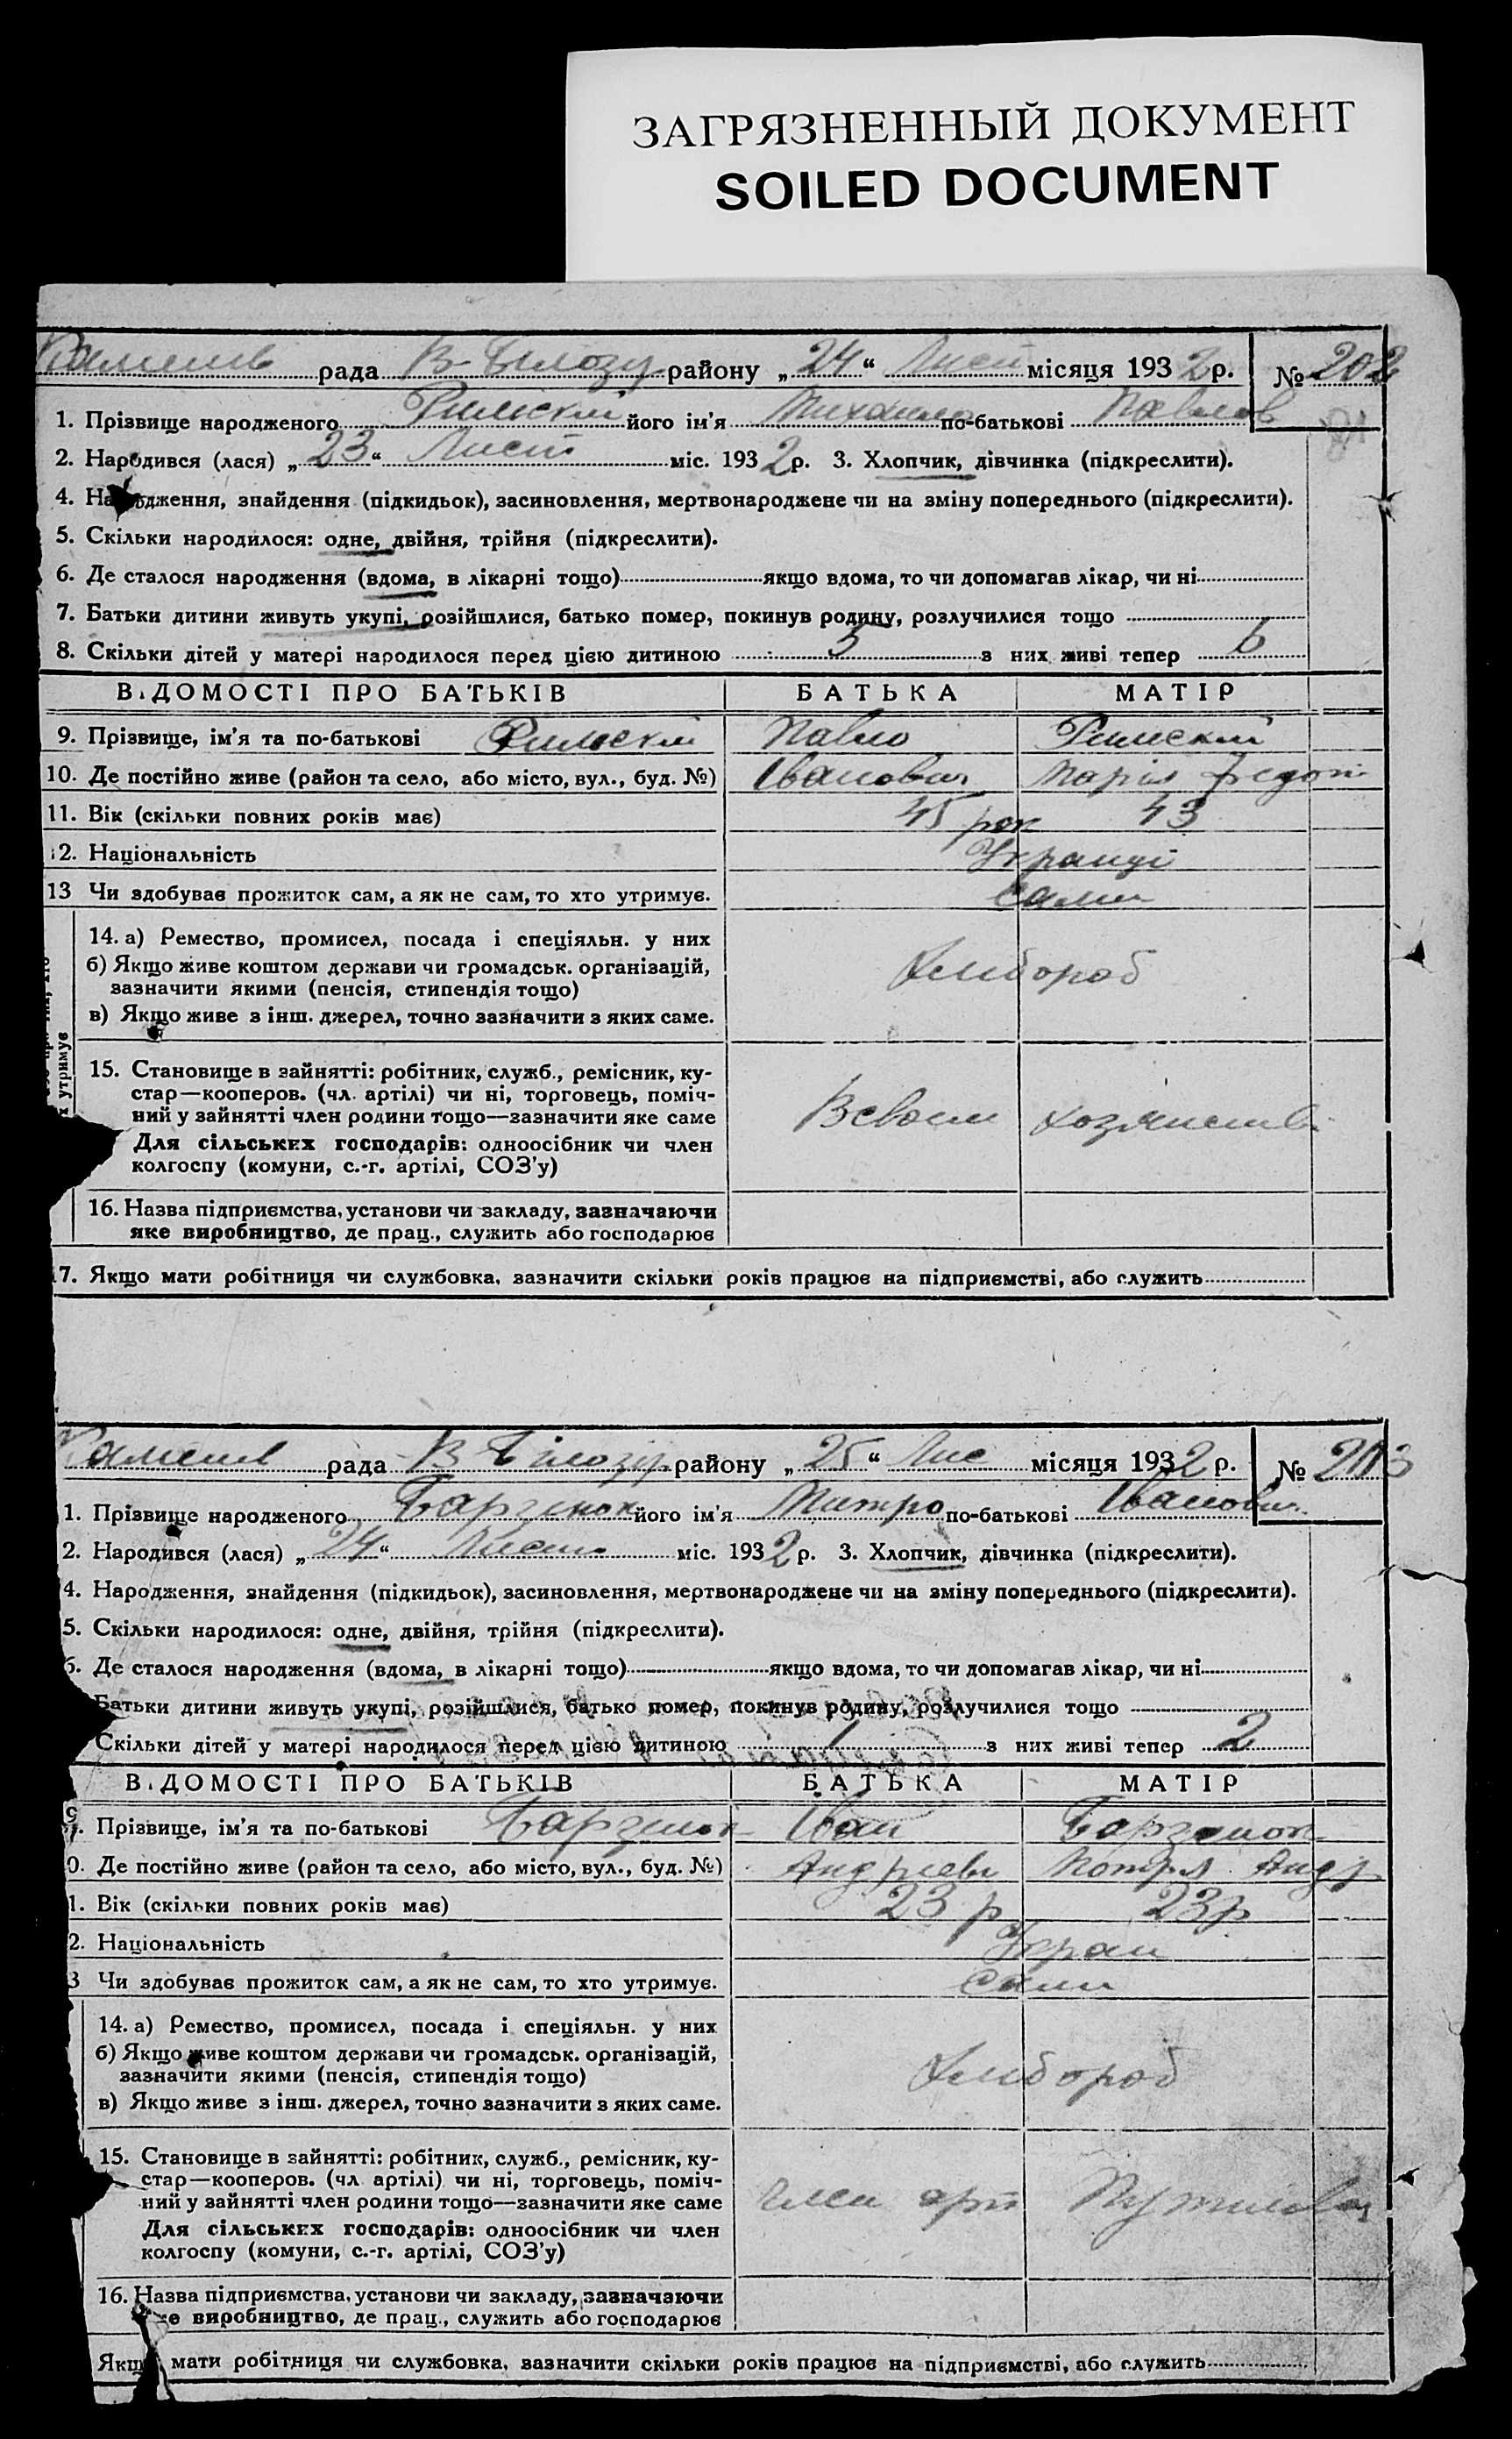 ЗАГРЯЗНЕННЫЙ ДОКУМЕНТ
SOILED DOCUMENT
рада В-Білозір району „24“ Лист місяця 1932 р. № 202
1. Прізвище народженого Рильский його ім'я Михайло по-батькові Павлов
2. Народився (лася) „23“ Лист міс. 1932 р. 3. Хлопчик, дівчинка (підкреслити).
4. Народження, знайдення (підкидьок), засиновлення, мертвонароджене чи на зміну попереднього (підкреслити).
5. Скільки народилося: одне, двійня, трійня (підкреслити).
6. Де сталося народження (вдома, в лікарні тощо) якщо вдома, то чи допомагав лікар, чи ні
7. Батьки дитини живуть укупі, розійшлися, батько помер, покинув родину, розлучилися тощо
8. Скільки дітей у матері народилося перед цією дитиною 5 з них живі тепер 6
ВІДОМОСТІ ПРО БАТЬКІВ БАТЬКА МАТІР
9. Прізвище, ім'я та по-батькові Рильский Павло Рильский
10. Де постійно живе (район та село, або місто, вул., буд. №) Іванович Марія Федот
11. Вік (скільки повних років має) 45 рок 43
12. Національність Українці
13 Чи здобував прожиток сам, а як не сам, то хто утримує. Сами
14. а) Ремество, промисел, посада і спеціяльн. у них
б) Якщо живе коштом держави чи громадськ. організацій,
зазначити якими (пенсія, стипендія тощо)
Хлібороб
в) Якщо живе з інш. джерел, точно зазначити з яких саме.
х утримує
15. Становище в зайнятті: робітник, служб., ремісник, ку-
стар—кооперов. (чл. артілі) чи ні, торговець, поміч-
ний у зайнятті член родини тощо—зазначити яке саме
В своем хозяистві
Для сільських господарів: одноосібник чи член
колгоспу (комуни, с.-г. артілі, СОЗ'у)
16. Назва підприємства, установи чи закладу, зазначаючи
яке виробництво, де прац., служить або господарює
17. Якщо мати робітниця чи службовка, зазначити скільки років працює на підприємстві, або служить
рада В Білозір району „25“ Лис місяця 1932 р. № 203
1. Прізвище народженого його ім'я Митро по-батькові Іванович
2. Народився (лася) „24“ Лист міс. 1932 р. 3. Хлопчик, дівчинка (підкреслити).
4. Народження, знайдення (підкидьок), засиновлення, мертвонароджене чи на зміну попереднього (підкреслити).
5. Скільки народилося: одне, двійня, трійня (підкреслити).
6. Де сталося народження (вдома, в лікарні тощо) якщо вдома, то чи допомагав лікар, чи ні
Батьки дитини живуть укупі, розійшлися, батько помер, покинув родину, розлучилися тощо
Скільки дітей у матері народилося перед цією дитиною 1 з них живі тепер 2
ВІДОМОСТІ ПРО БАТЬКІВ БАТЬКА МАТІР
9. Прізвище, ім'я та по-батькові Іван
0. Де постійно живе (район та село, або місто, вул., буд. №) Андрієв Мотря Андр
1. Вік (скільки повних років має) 23 р 23 р
2. Національність Украи
3 Чи здобував прожиток сам, а як не сам, то хто утримує. Сами
14. а) Ремество, промисел, посада і спеціяльн. у них
б) Якщо живе коштом держави чи громадськ. організацій,
зазначити якими (пенсія, стипендія тощо)
Хлібороб
в) Якщо живе з інш. джерел, точно зазначити з яких саме.
15. Становище в зайнятті: робітник, служб., ремісник, ку-
стар—кооперов. (чл. артілі) чи ні, торговець, поміч-
ний у зайнятті член родини тощо—зазначити яке саме
Член арт
Для сільських господарів: одноосібник чи член
колгоспу (комуни, с.-г. артілі, СОЗ'у)
16. Назва підприємства, установи чи закладу, зазначаючи
яке виробництво, де прац., служить або господарює
Якщо мати робітниця чи службовка, зазначити скільки років працює на підприємстві, або служить